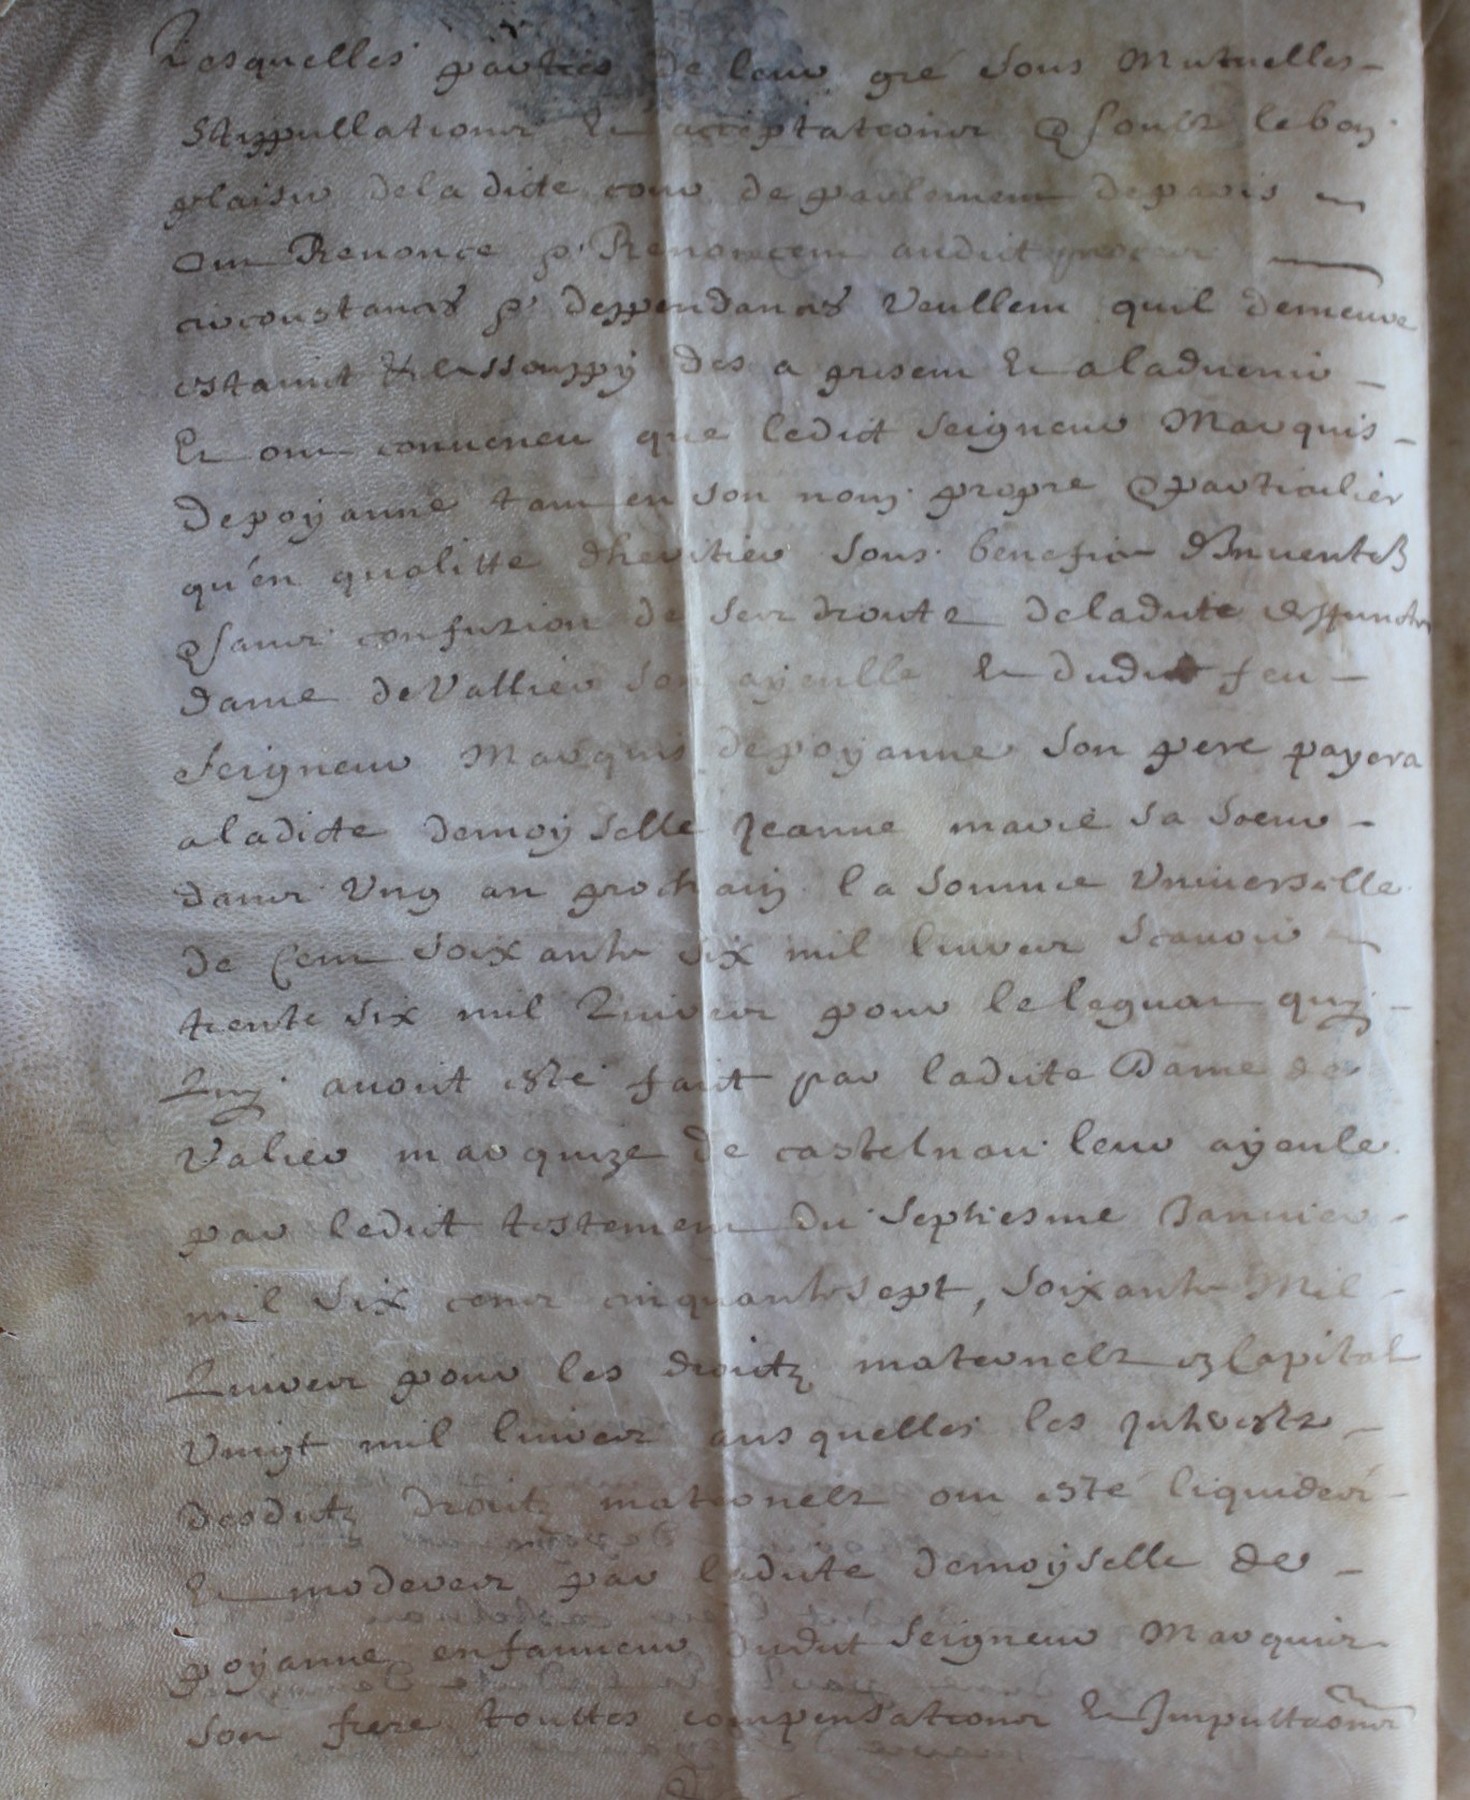 Lesquelles parties de leur gré sous mutuelles
stippullations et acceptations & soubz le bon
plaisir de la dicte cour de parlement de paris
ont Renoncé & Renoncent audict procez
circonstances & deppendances veullent quil demeure
estaint & assouppy des a present et a ladvenir
Et ont conveneu que ledict seigneur Marquis
de poyanne tant en son nom propre & particulier
qu'en qualitte dheritier sous benefice dInventaire
& sans confuzion de ses droits de ladite deffuncte
dame de Vallier son ayeulle et dudit feu
seigneur Marquis de poyanne son pere payera
a ladicte demoyselle Jeanne marie sa soeur
dans Ung an prochain la somme universelle
de Cent soixante six mil livres scavoir
trente six mil Livres pour le leguat quy
Luy avoit esté fait par ladite Dame de
Valier marquize de castelnau leur ayeule
par ledit testement du septiesme Janvier
mil six cens cinquante sept, soixante Mil
Livres pour les droitz maternels en Capital
vingt mil livres ausquelles les Interests
desditz droitz maternels ont esté liquidés
Et moderes par ladite demoyselle de
poyanne en faveur dudit seigneur Marquis
son frere touttes compensations et Imputtaons